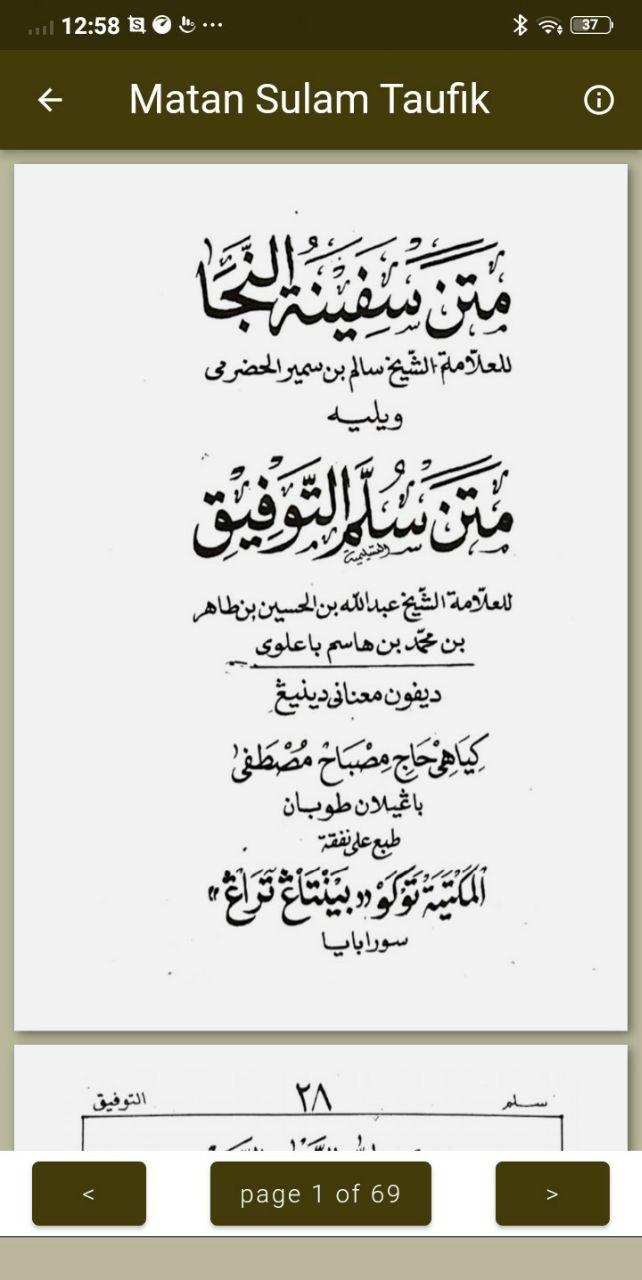 12:58
37
Matan Sulam Taufik
مَتَن سَفِينَةُ النَّجَا
للعلّامة الشّيخ سالم بن سمير الحضرمى
ويليه
مَتَن سُلَّم التَّوفِيقِ
للعلّامة الشّيخ عبدالله بن الحسين بن طاهر
بن محمّد بن هاسم باعلوى
ديفون معنانى دينيڠ
كِيَاهِىْ حَاجِ مِصْبَاحْ مُصْطَفىٰ
باڠيلان طوبان
طبع على نفقة
المَكْتَبَة تَوْكَوْ «بِيْنْتَاڠْ تَرَاڠْ»
سورابايا
سلم ٢٨ التوفيق
<
page 1 of 69
>